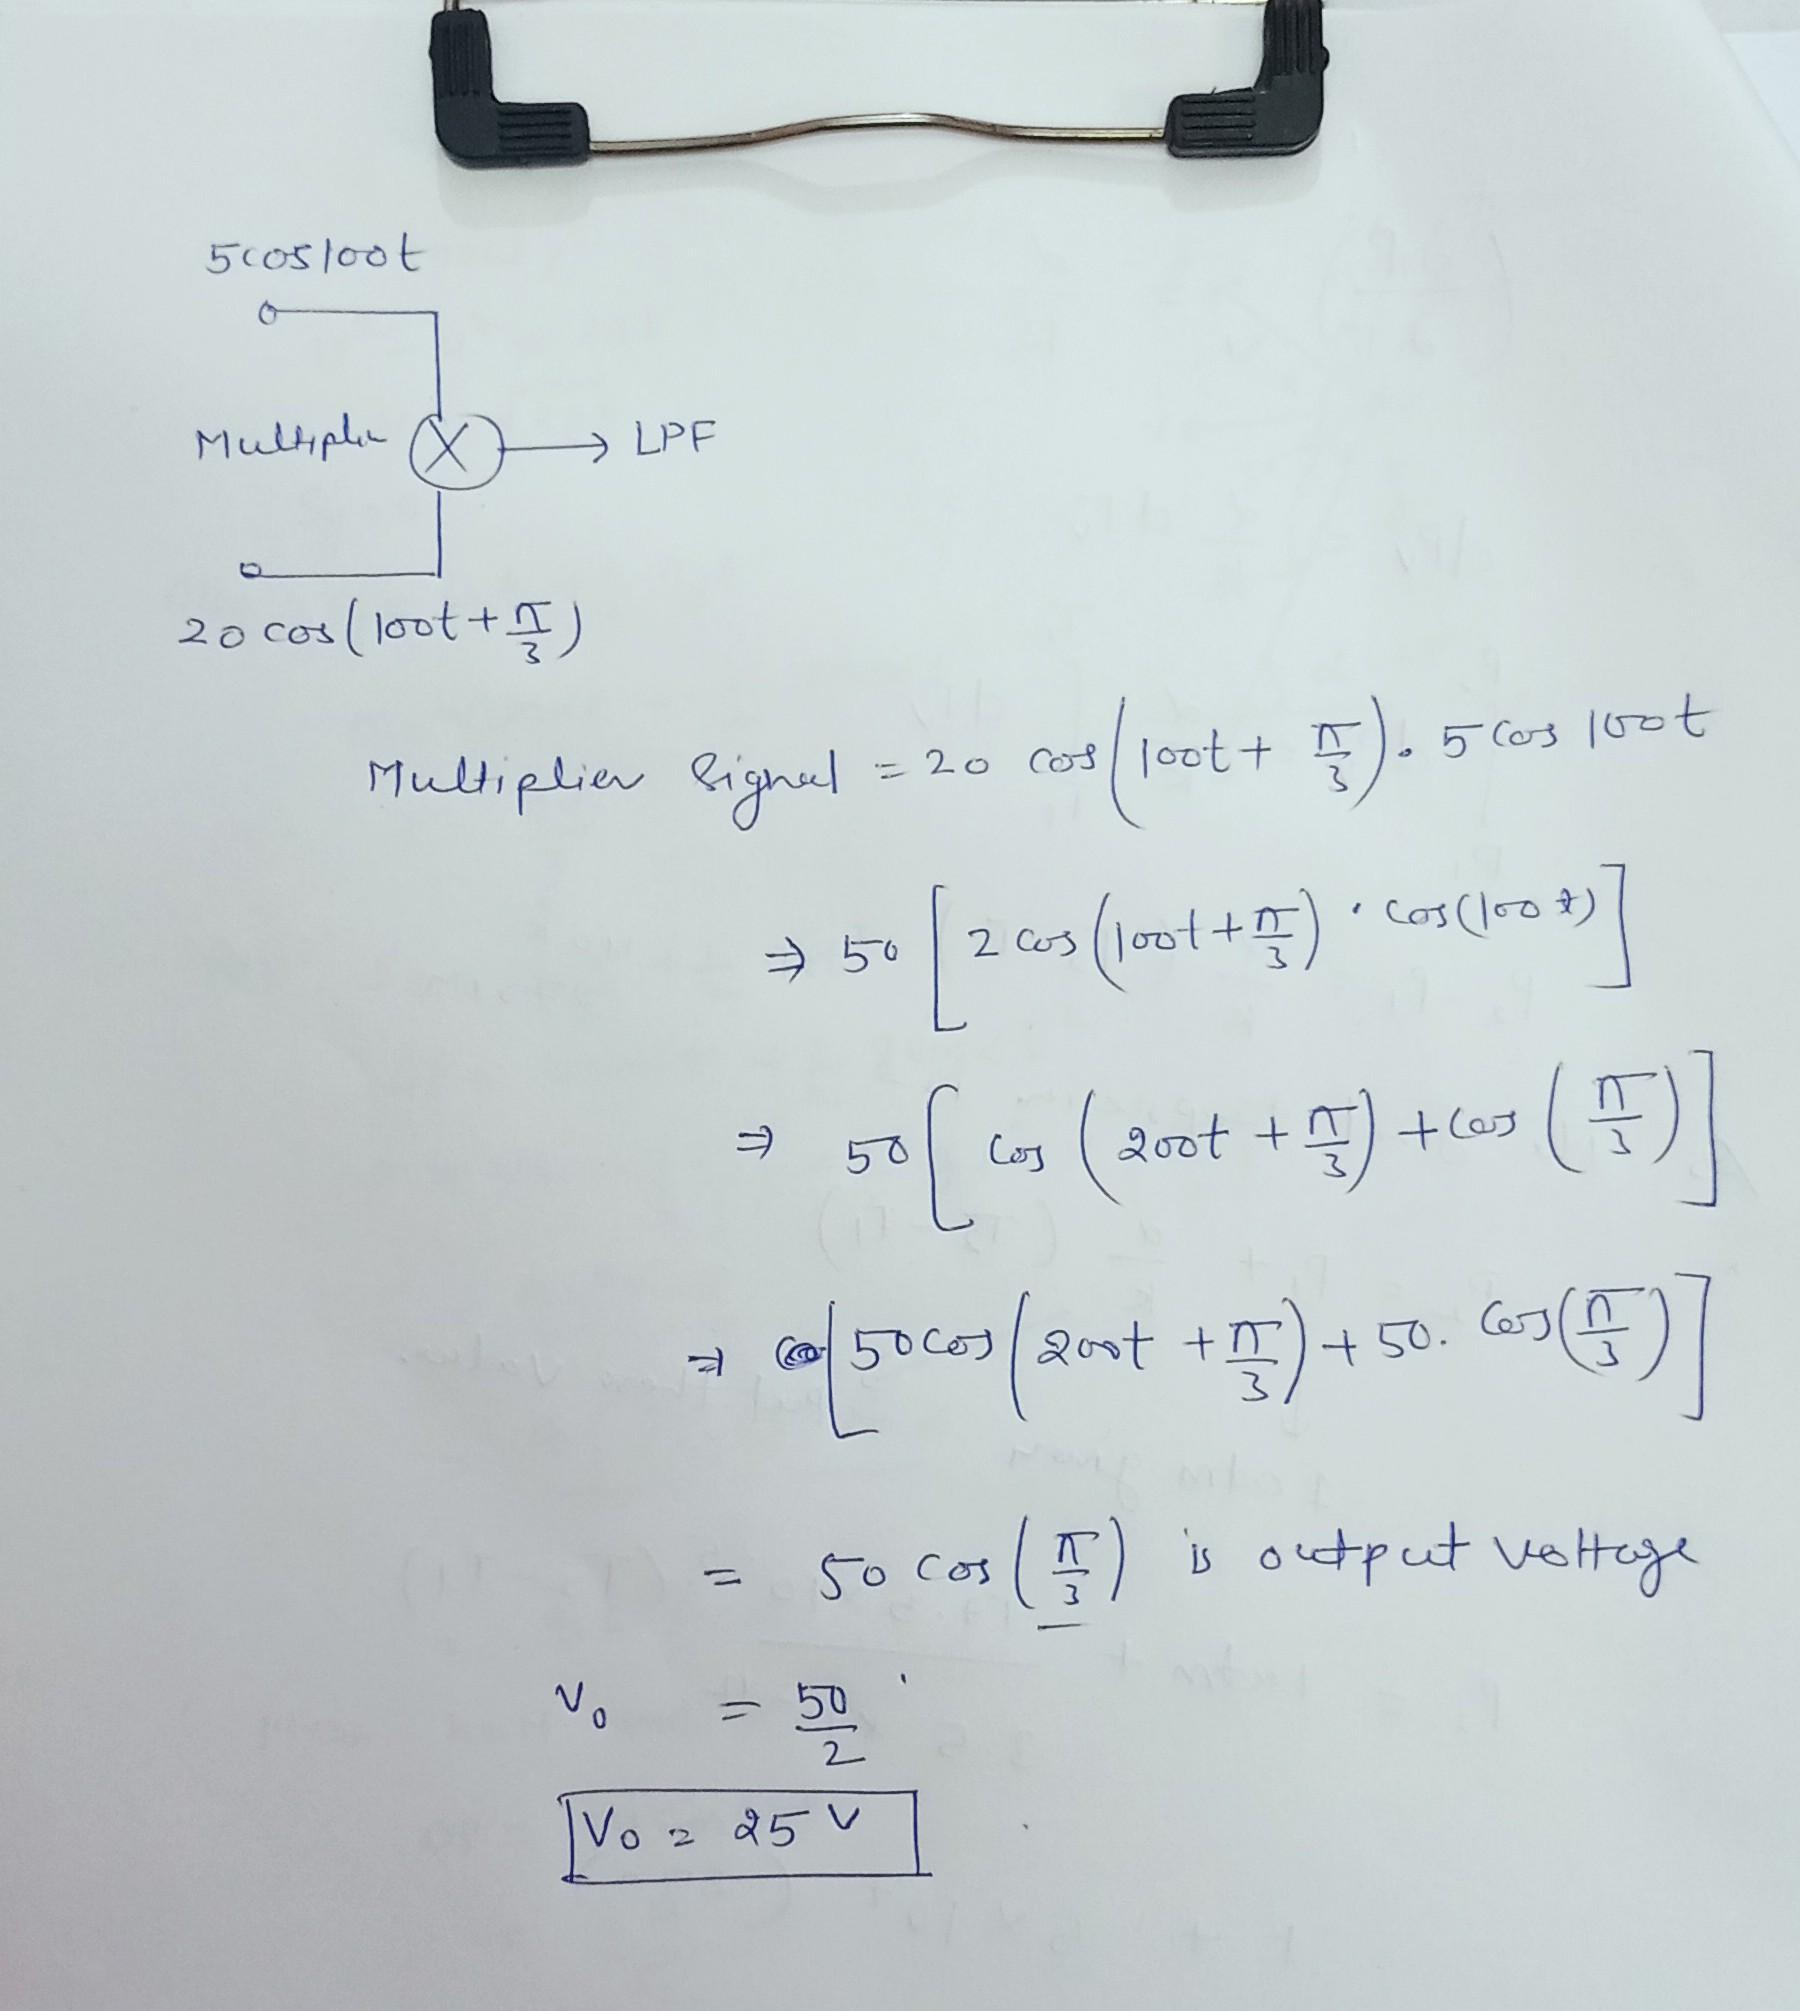 5cos100t
Multiplier X → LPF
20 cos(100t + π/3)
Multiplier Signal = 20 cos(100t + π/3). 5 cos 100t
⇒ 50 [2 cos(100t + π/3) · cos(100t)]
⇒ 50 [cos(200t + π/3) + cos(π/3)]
⇒ [50 cos(200t + π/3) + 50. cos(π/3)]
= 50 cos(π/3) is output voltage
V₀ = 50/2
V₀ = 25 V